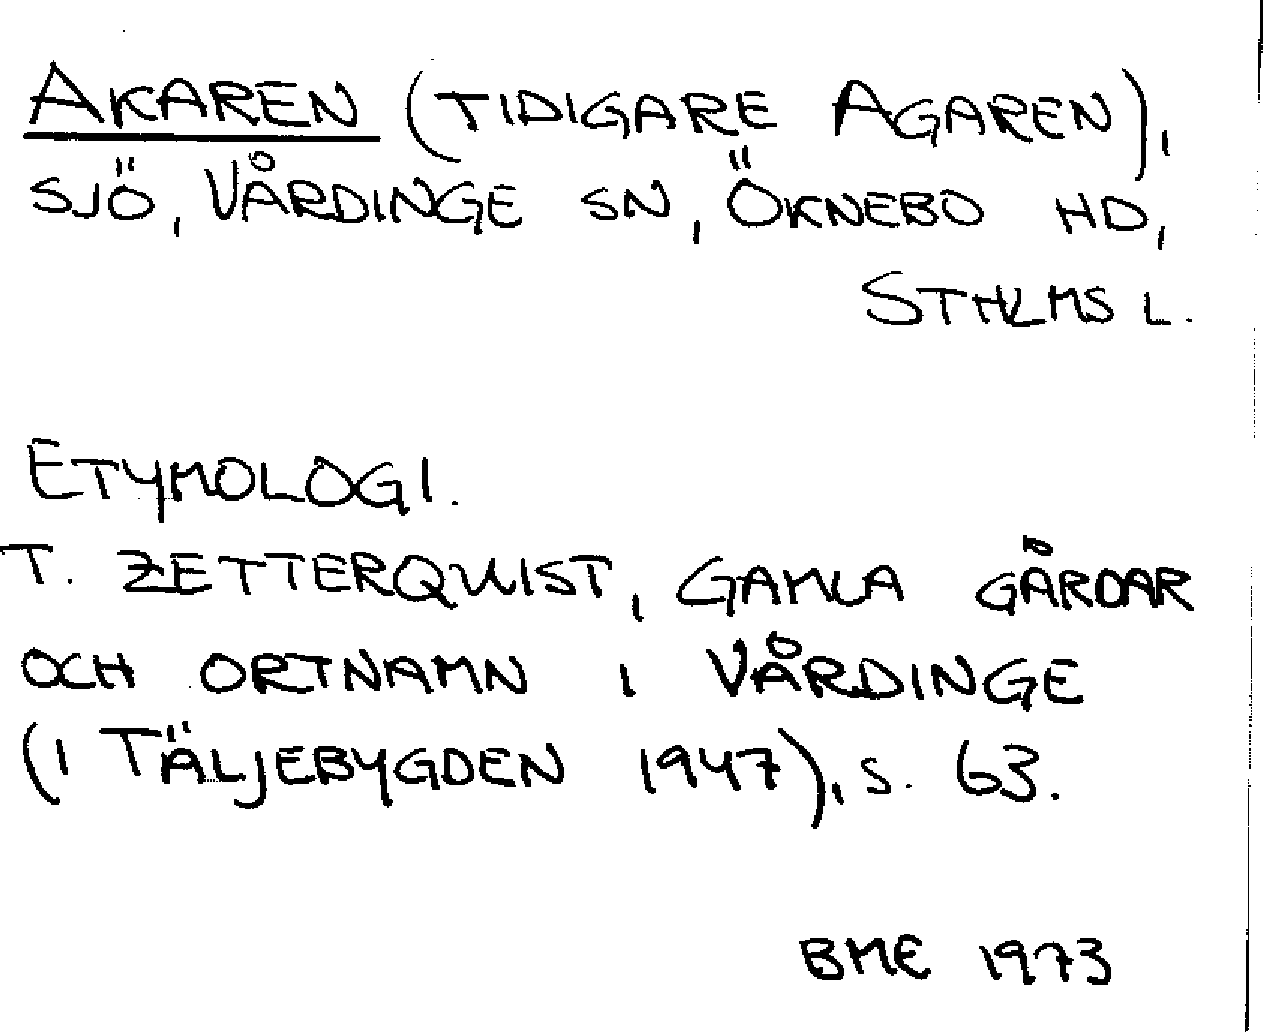 AKAREN (TIDIGARE AGAREN),
SJÖ, VÅRDINGE SN, ÖKNEBO HD,
STHLMS L.
ETYMOLOGI.
T. ZETTERQUIST, GAMLA GÅRDAR
OCH ORTNAMN I VÅRDINGE
(I TÄLJEBYGDEN 1947), S. 63.
BME 1973